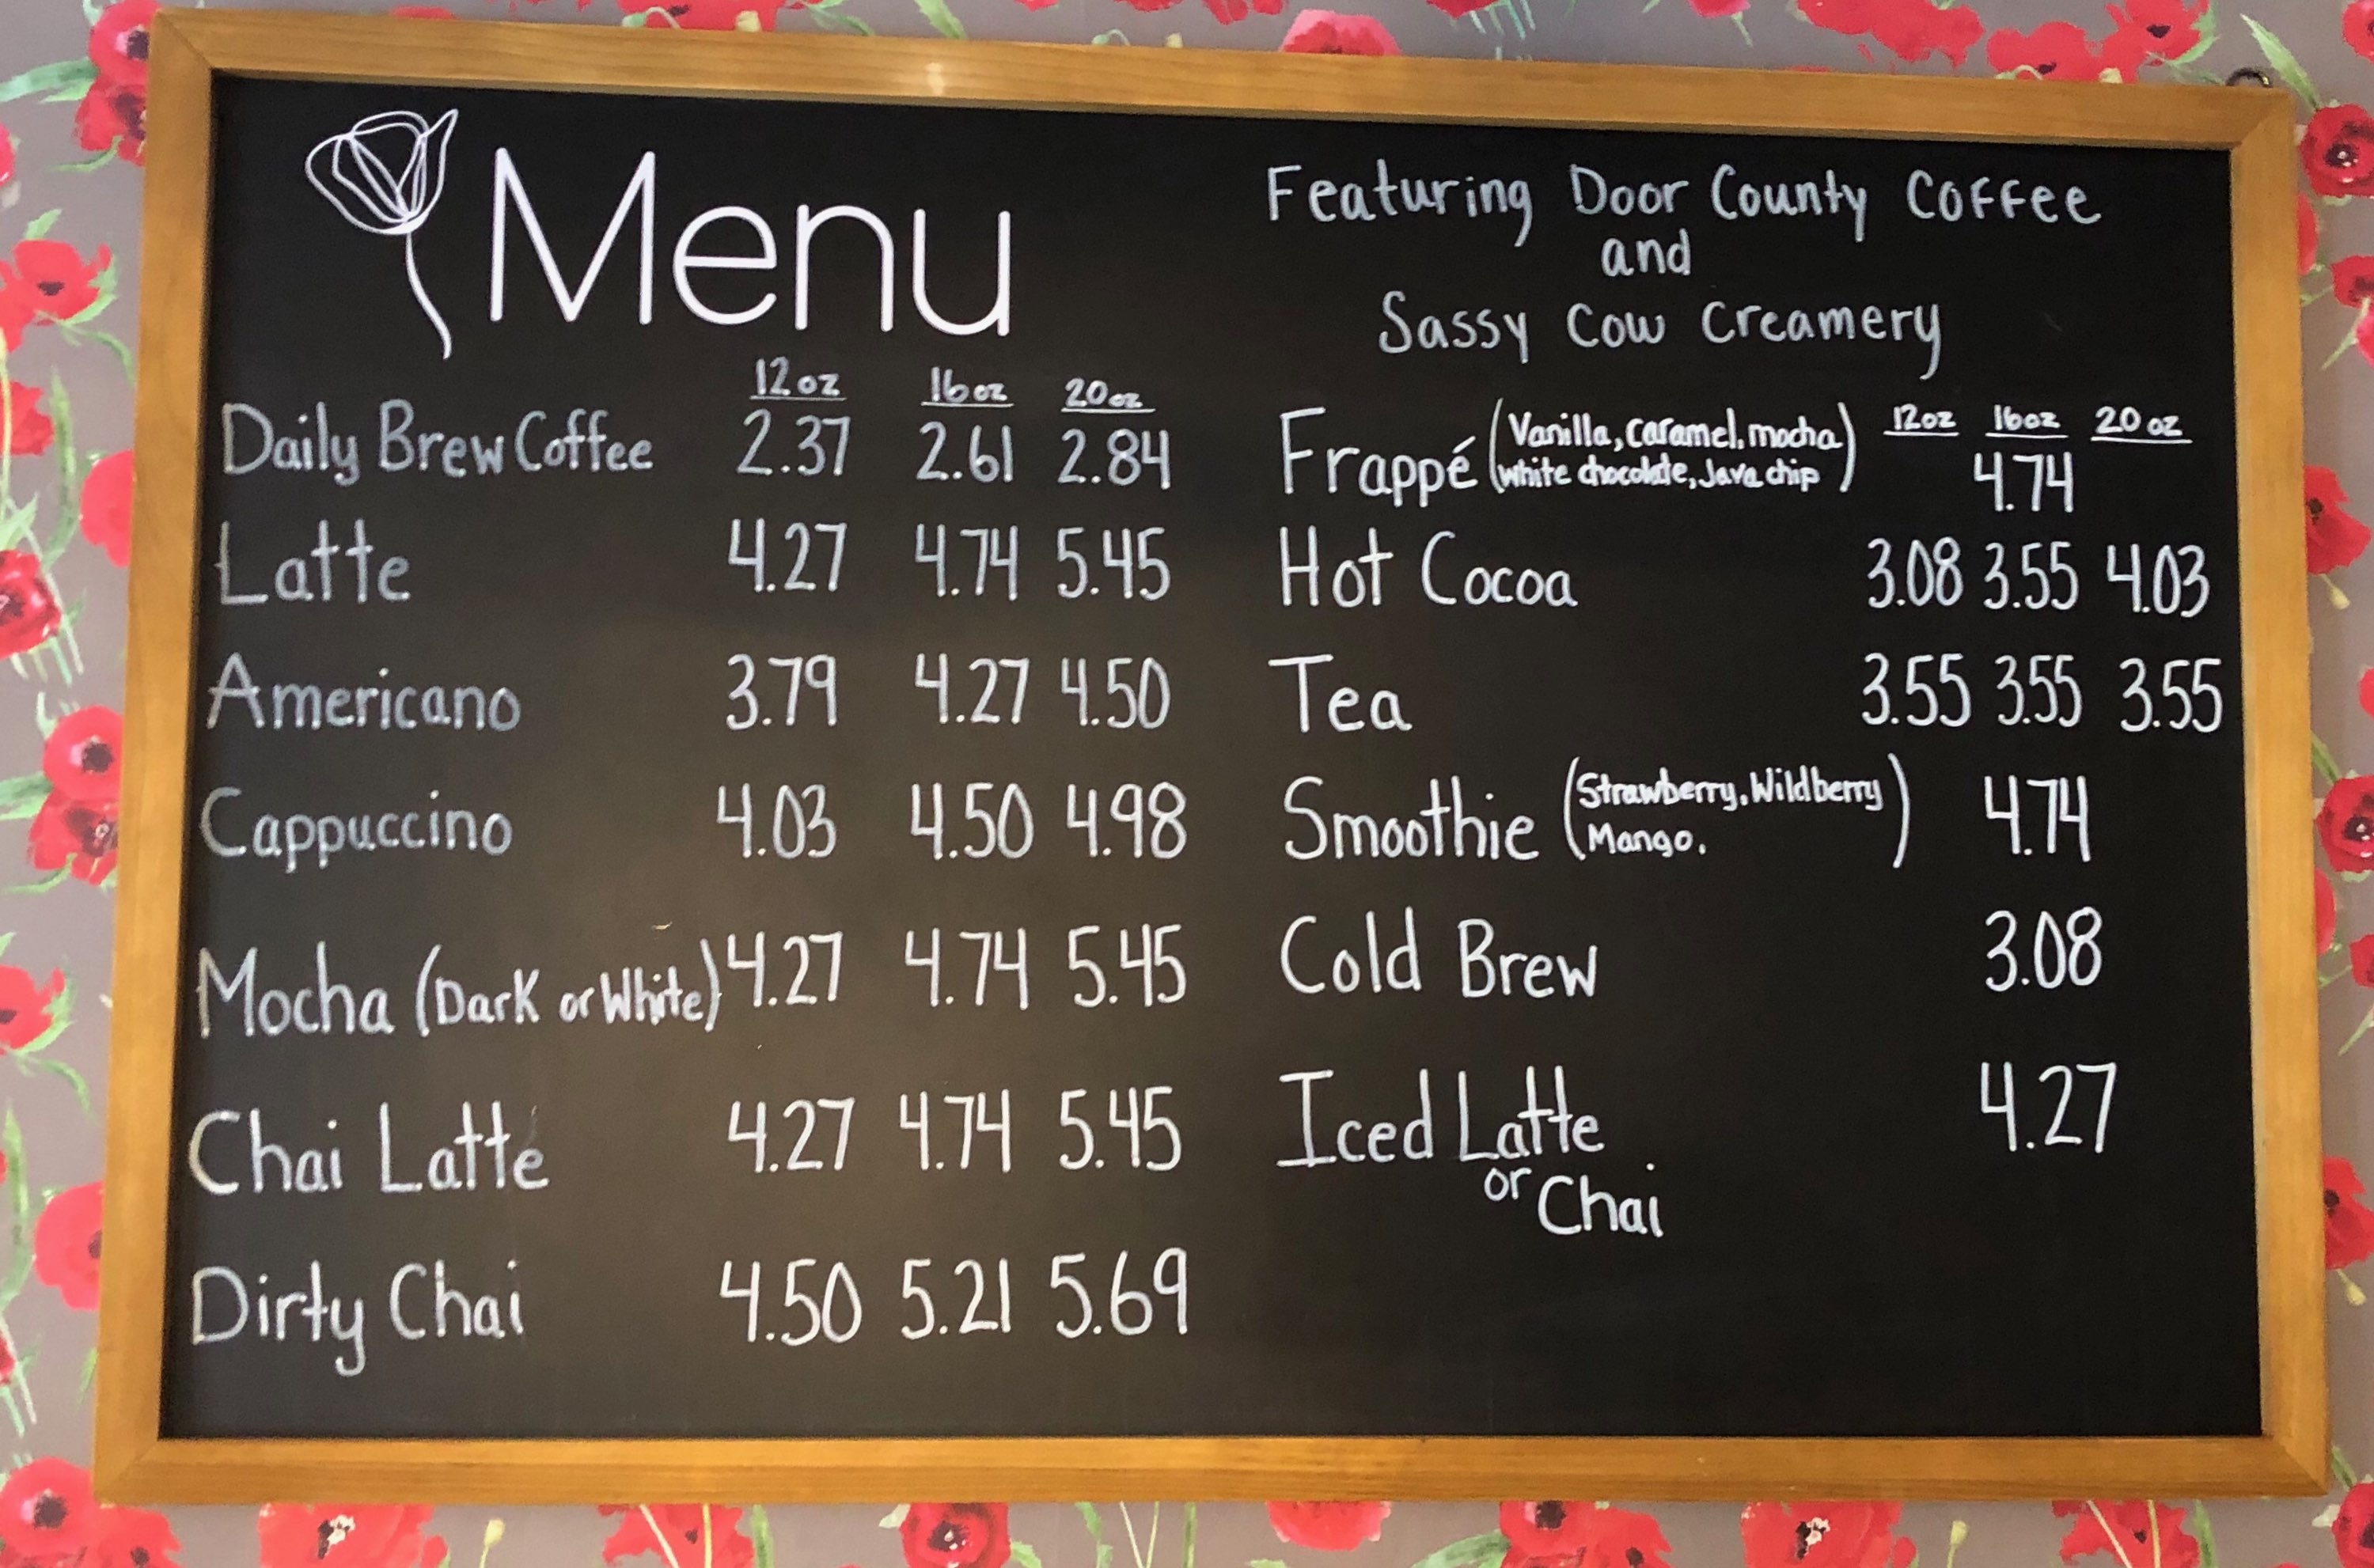 Menu
12oz 16oz 20oz
Daily Brew Coffee 2.37 2.61 2.84
Latte 4.27 4.74 5.45
Americano 3.79 4.27 4.50
Cappuccino 4.03 4.50 4.98
Mocha (Dark or White) 4.27 4.74 5.45
Chai Latte 4.27 4.74 5.45
Dirty Chai 4.50 5.21 5.69
Featuring Door County Coffee
and
Sassy Cow Creamery
12oz 16oz 20oz
Frappé (Vanilla, caramel, mocha
white chocolate, Java chip) 4.74
Hot Cocoa 3.08 3.55 4.03
Tea 3.55 3.55 3.55
Smoothie (Strawberry, Wildberry
Mango.) 4.74
Cold Brew 3.08
Iced Latte 4.27
or Chai